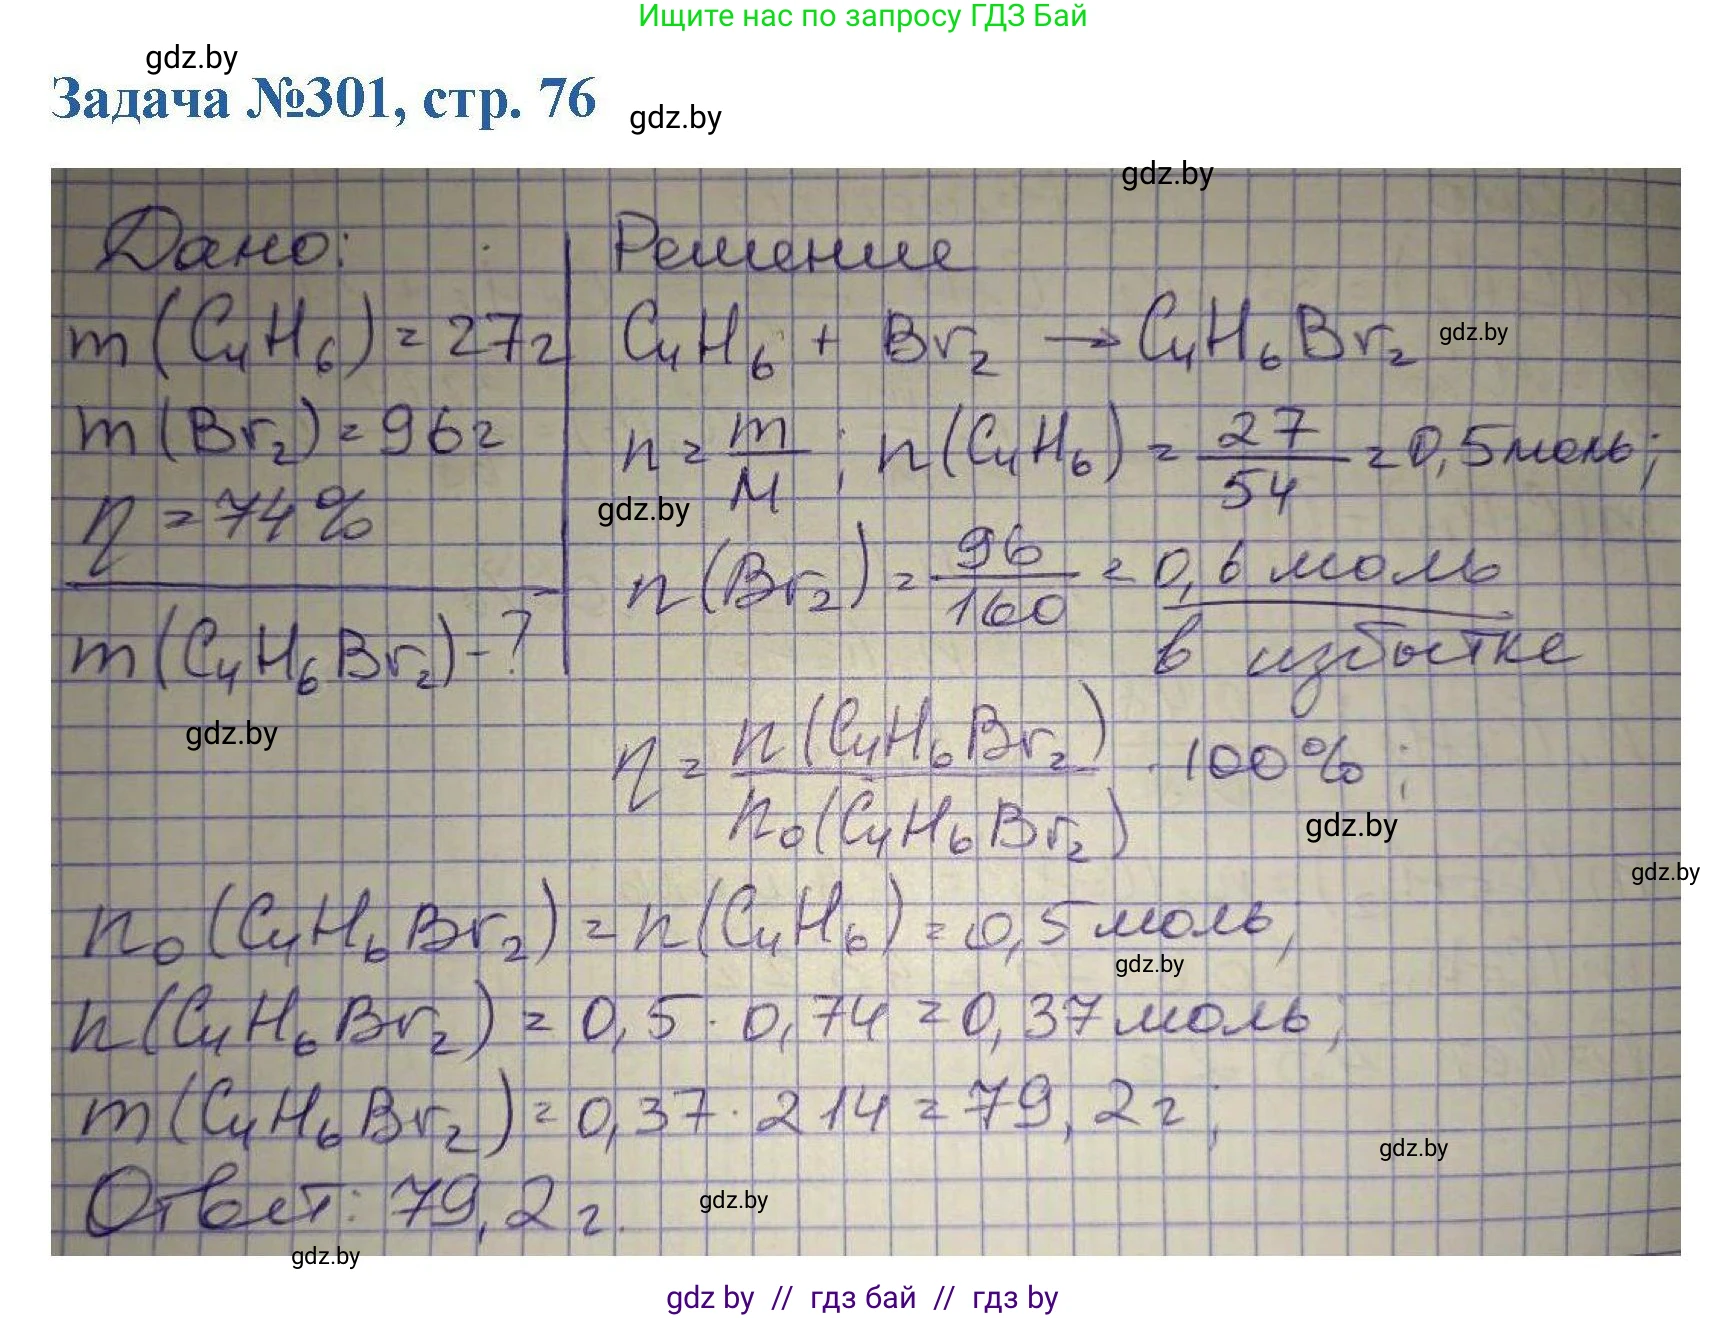 Ищите нас по запросу ГДЗ Бай
gdz.by
Задача №301, стр. 76
gdz.by
gdz.by
Дано:
m(C₄H₆) = 27г
m(Br₂) = 96г
η = 74%
m(C₄H₆Br₂) - ?
gdz.by
Решение
C₄H₆ + Br₂ → C₄H₆Br₂
gdz.by
n = m/M; n(C₄H₆) = 27/54 = 0,5моль;
gdz.by
n(Br₂) = 96/160 = 0,6 моль
в избытке
η = n(C₄H₆Br₂)/n₀(C₄H₆Br₂) · 100%;
gdz.by
gdz.by
n₀(C₄H₆Br₂) = n(C₄H₆) = 0,5 моль;
gdz.by
n(C₄H₆Br₂) = 0,5 · 0,74 = 0,37моль;
m(C₄H₆Br₂) = 0,37 · 214 = 79,2г;
gdz.by
Ответ: 79,2 г.
gdz.by
gdz.by
gdz by // гдз бай // гдз by